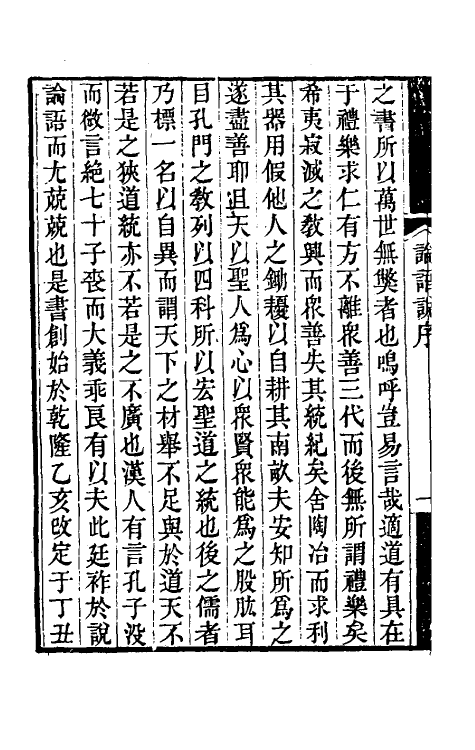 論語說序
一
之書所以萬世無獘者也嗚呼豈易言哉適道有具在
于禮樂求仁有方不離衆善三代而後無所謂禮樂矣
希夷寂滅之敎興而衆善失其統紀矣舍陶冶而求利
其器用假他人之鋤耰以自耕其南畝夫安知所爲之
遂盡善耶且天以聖人爲心以衆賢衆能爲之股肱耳
目孔門之敎列以四科所以宏聖道之統也後之儒者
乃標一名以自異而謂天下之材舉不足與於道天不
若是之狹道統亦不若是之不廣也漢人有言孔子沒
而微言絶七十子喪而大義乖良有以夫此廷祚於說
論語而尢兢兢也是書創始於乾隆乙亥改定于丁丑